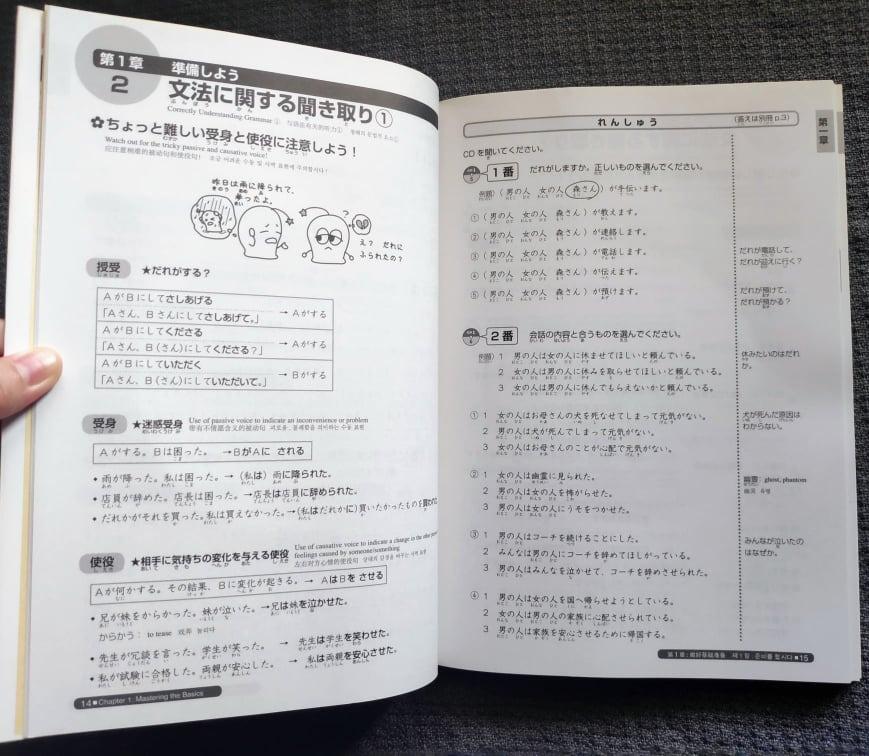 第1章 準備しよう
2 文法に関する聞き取り①
ぶんぽう かん き と
Correctly Understanding Grammar ① 与语法有关的听力① 청해의 문법적 요소①
✿ちょっと難しい受身と使役に注意しよう！
むずか うけみ しえき ちゅうい
Watch out for the tricky passive and causative voice!
应注意稍难的被动句和使役句! 조금 어려운 수동 및 사역 표현에 주의합시다!
昨日は雨に降られて、
きのう あめ ふ
困ったよ。
え？ だれに
ふられたの？
授受 ★だれがする？
じゅじゅ
AがBにしてさしあげる
「Aさん、Bさんにしてさしあげて。」 → Aがする
AがBにしてくださる
「Aさん、B(さん)にしてくださる？」 → Aがする
AがBにしていただく
「Aさん、B(さん)にしていただいて。」 → Bがする
受身 ★迷惑受身 Use of passive voice to indicate an inconvenience or problem
うけみ めいわくうけみ 带有不情愿含义的被动句
Aがする。Bは困った。 →BがAに される
• 雨が降った。私は困った。→（私は）雨に降られた。
• 店員が辞めた。店長は困った。→店長は店員に辞められた。
• だれかがそれを買った。私は買えなかった。→（私はだれかに）買いたかったものを買われた
使役 ★相手に気持ちの変化を与える使役 Use of causative voice to indicate a change in the other person's
しえき あいて きも へんか あた しえき feelings caused by someone/something
左右对方心情的使役句
Aが何かする。その結果、Bに変化が起きる。→ AはBを させる
• 兄が妹をからかった。妹が泣いた。→兄は妹を泣かせた。
からかう：to tease 戏弄 놀리다
• 先生が冗談を言った。学生が笑った。 → 先生は学生を笑わせた。
• 私が試験に合格した。両親が安心した。 → 私は両親を安心させた。
14■Chapter 1: Mastering the Basics
れんしゅう （答えは別冊 p.3）
第一章
CDを聞いてください。
5 1番 だれがしますか。正しいものを選んでください。
例題）（ 男の人 女の人 森さん ）が手伝います。
①（ 男の人 女の人 森さん ）が教えます。
②（ 男の人 女の人 森さん ）が連絡します。
③（ 男の人 女の人 森さん ）が電話します。
④（ 男の人 女の人 森さん ）が伝えます。
⑤（ 男の人 女の人 森さん ）が預けます。
だれが電話して、
だれが迎えに行く？
だれが預けて、
だれが預かる？
6 2番 会話の内容と合うものを選んでください。
例題）1 男の人は女の人に休ませてほしいと頼んでいる。
2 女の人は男の人に休みを取らせてほしいと頼んでいる。
3 男の人は女の人に休んでもらえないかと頼んでいる。
休みたいのはだれ
か。
① 1 女の人はお母さんの犬を死なせてしまって元気がない。
2 男の人は犬が死んでしまって元気がない。
3 女の人はお母さんのことが心配で元気がない。
犬が死んだ原因は
わからない。
② 1 女の人は幽霊に見られた。
2 男の人は女の人を怖がらせた。
3 男の人は女の人にうそをつかせた。
幽霊：ghost, phantom
幽灵 유령
③ 1 男の人はコーチを続けることにした。
2 みんなは男の人にコーチを辞めてほしがっている。
3 男の人はみんなを泣かせて、コーチを辞めさせられた。
みんなが泣いたの
はなぜか。
④ 1 男の人は女の人を国へ帰らせようとしている。
2 女の人は男の人の家族に心配させられている。
3 男の人は家族を安心させるために帰国する。
第1章：做好基础准备 제1장：준비를 합시다■15